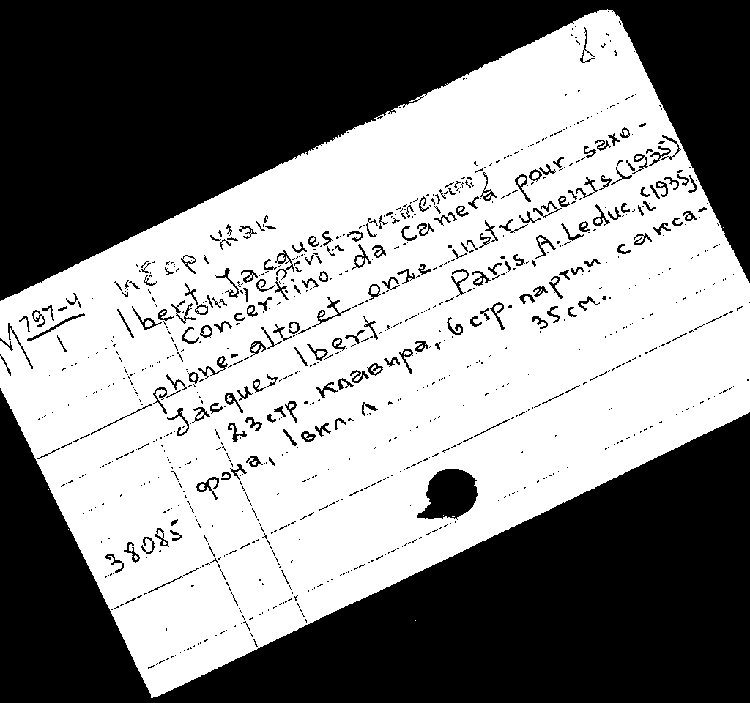 8.
Ибер, Жак
М 797-4
1
Ibert, Jacques.
Концертино (камерное)
Concertino da camera pour saxo-
phone-alto et onze instruments (1935)
Jacques Ibert. Paris, A. Leduc, [1935]
23 стр. клавира, 6 стр. партии сакса-
фона, 1 вкл. л. 35 см.
38085